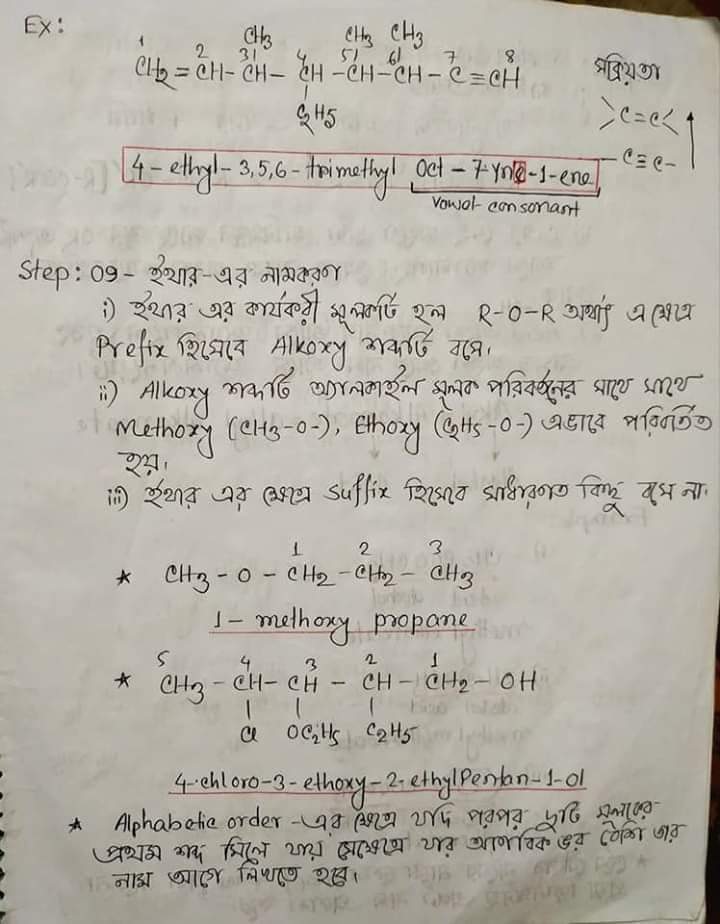 Ex:
CH3 CH3 CH3
1 2 3 4 5 6 7 8
CH2 = CH - CH - CH - CH - CH - C ≡ CH
C2H5
সক্রিয়তা
>C = C<
- C ≡ C -
4 - ethyl - 3,5,6 - trimethyl Oct - 7-yne-1-ene
vowol- consonant
Step: 09 - ইথার-এর নামকরণ
i) ইথার এর কার্যকরী মূলকটি হল R-O-R অর্থাৎ এক্ষেত্রে
Prefix হিসেবে Alkoxy শব্দটি বসে।
ii) Alkoxy শব্দটি অ্যালকাইল মূলক পরিবর্তনের সাথে সাথে
Methoxy (CH3-O-), Ethoxy (C2H5-O-) এভাবে পরিবর্তিত
হয়।
iii) ইথার এর ক্ষেত্রে suffix হিসেবে সাধারণত কিছু বসে না।
1 2 3
* CH3 - O - CH2 - CH2 - CH3
1 - methoxy propane
5 4 3 2 1
* CH3 - CH - CH - CH - CH2 - OH
Cl OC2H5 C2H5
4-chloro-3-ethoxy-2-ethylPentan-1-ol
* Alphabetic order -এর ক্ষেত্রে যদি পরপর দুটি মূলকের
প্রথম শব্দ মিলে যায় সেক্ষেত্রে যার আণবিক ভর বেশি তার
নাম আগে লিখতে হবে।